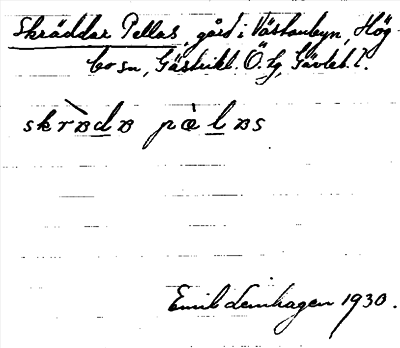 Skräddar Pellas, gård i Västanbyn, Hög-
bo sn, Gästrikl. Ö. Hg, Gävleb. l.
skrὰdα pὲlαs
Emil Leinhagen 1930.